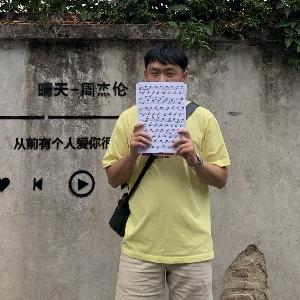 晴天-周杰伦
从前有个人爱你很